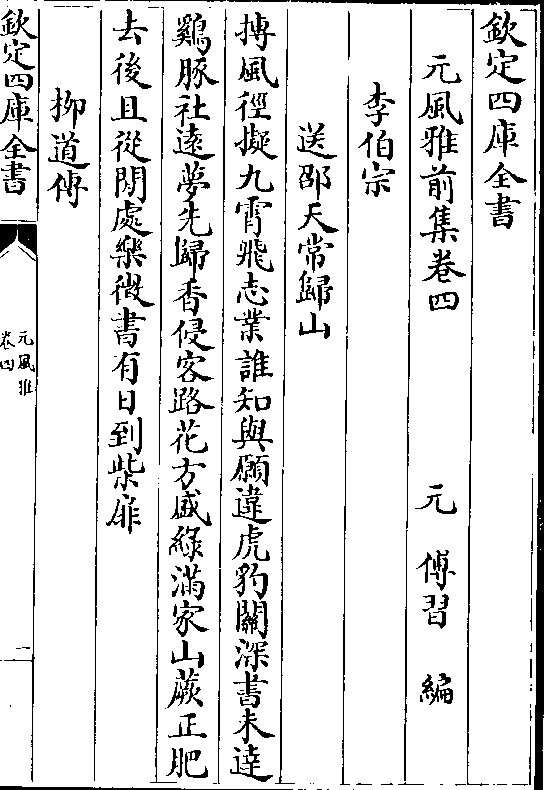 欽定四庫全書
元風雅前集卷四
元 傅習 編
李伯宗
送邵天常歸山
摶風徑擬九霄飛志業誰知與願違虎豹關深書未達
鷄豚社遠夢先歸香侵客路花方盛綠滿家山蕨正肥
去後且從閒處樂徵書有日到柴扉
柳道傳
欽定四庫全書
元風雅
卷四
一